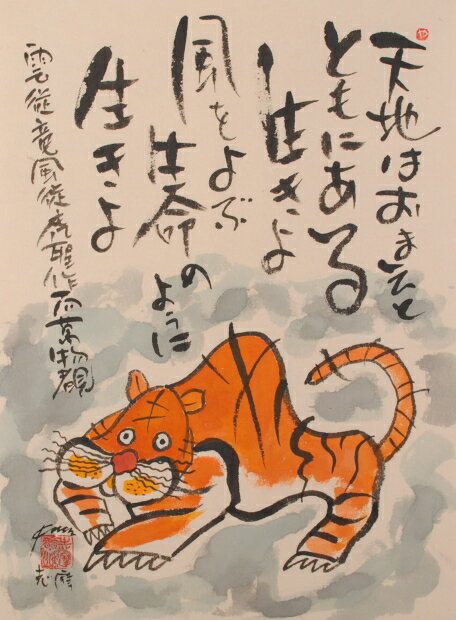 天地はおまえと
ともにある
生きよ
風をよぶ
生命の
ように
生きよ
雲従竜風従虎聖作而万物覩